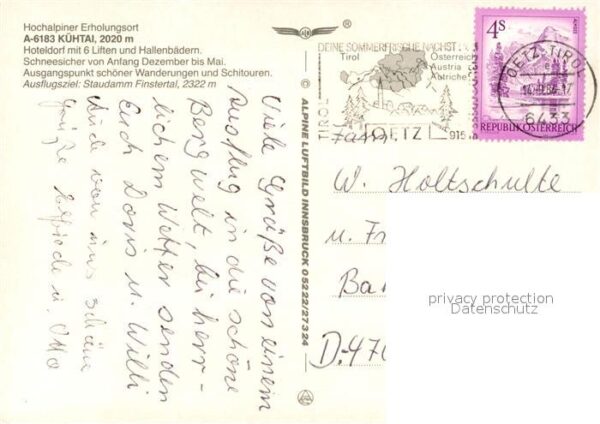 Hochalpiner Erholungsort
A-6183 KÜHTAI, 2020 m
Hoteldorf mit 6 Liften und Hallenbädern.
Schneesicher von Anfang Dezember bis Mai.
Ausgangspunkt schöner Wanderungen und Schitouren.
Ausflugsziel: Staudamm Finstertal, 2322 m
Viele Grüße von einem
Ausflug in die schöne
Bergwelt, bei herr-
lichem Wetter senden
Euch Doris u. Willi
Auch von uns schöne
Grüße u. Otto
© ALPINE LUFTBILD INNSBRUCK 05222/27324
®
DEINE SOMMERFRISCHE NÄCHST
Tirol Österreich
Austria
Autriche
TIROL
OETZ 915
4S
REPUBLIK ÖSTERREICH
OETZ-TIROL
6433
Fam.
W. Holtschulte
u. Fr
Ba
D-470
privacy protection
Datenschutz